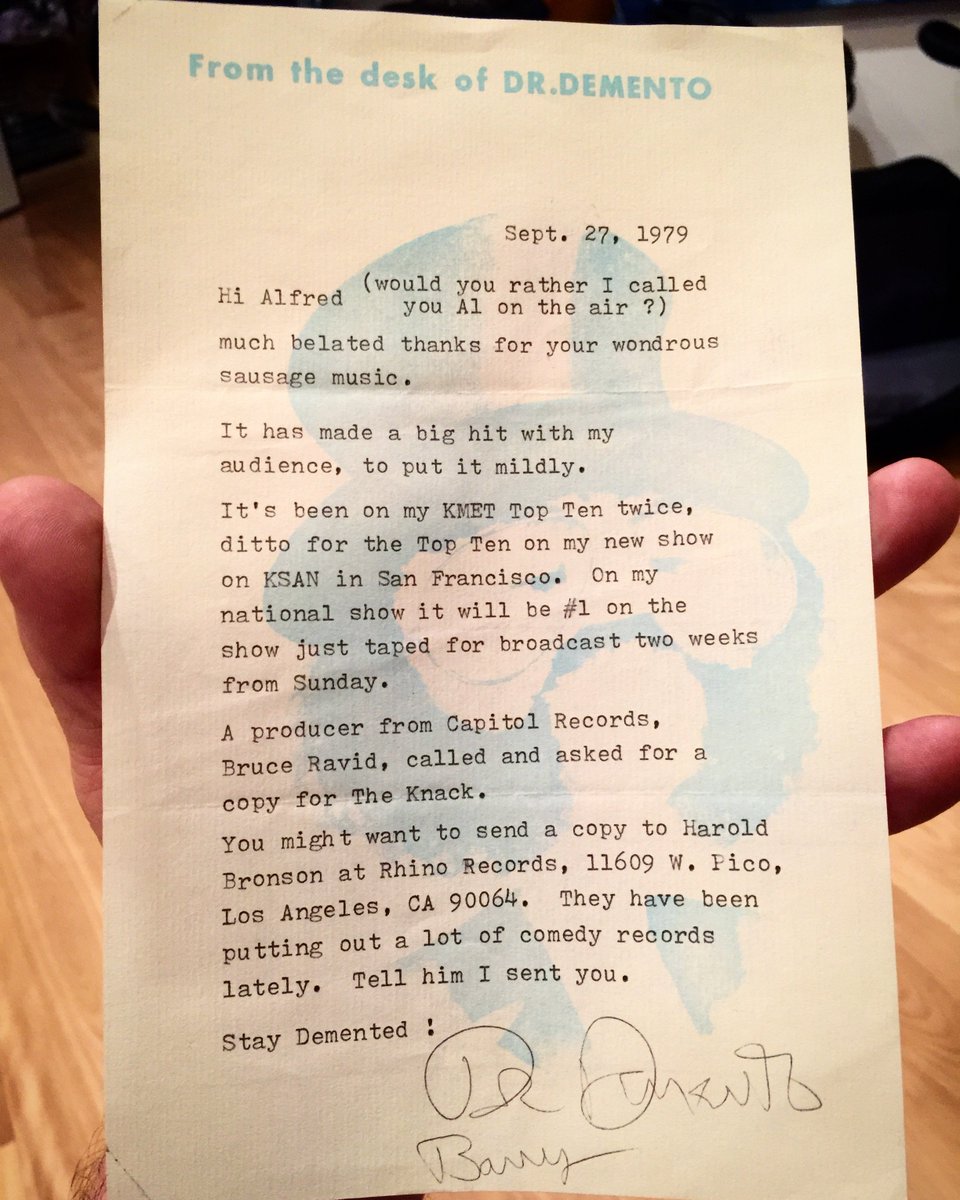 From the desk of DR.DEMENTO
Sept. 27, 1979
Hi Alfred (would you rather I called
you Al on the air ?)
much belated thanks for your wondrous
sausage music.
It has made a big hit with my
audience, to put it mildly.
It's been on my KMET Top Ten twice,
ditto for the Top Ten on my new show
on KSAN in San Francisco. On my
national show it will be #1 on the
show just taped for broadcast two weeks
from Sunday.
A producer from Capitol Records,
Bruce Ravid, called and asked for a
copy for The Knack.
You might want to send a copy to Harold
Bronson at Rhino Records, 11609 W. Pico,
Los Angeles, CA 90064. They have been
putting out a lot of comedy records
lately. Tell him I sent you.
Stay Demented !
Dr Demento
Barry